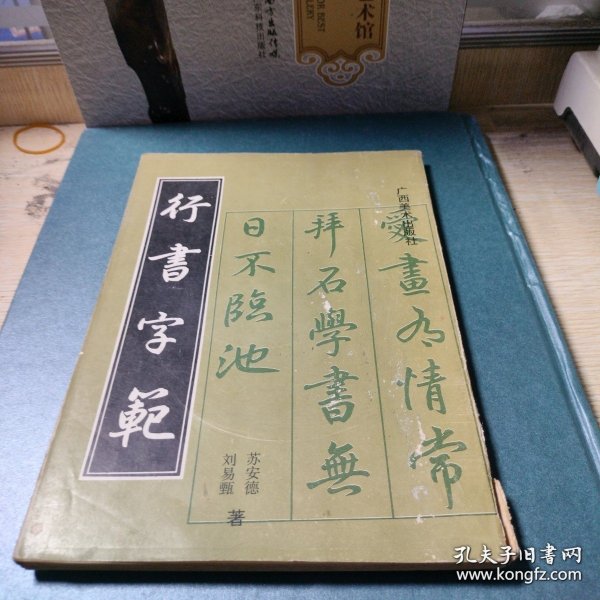 行書字範
愛畫有情常
拜石學書無
日不臨池
广西美术出版社
苏安德
刘易甄
著
术馆
东科技出版社
孔夫子旧书网
www.kongfz.com